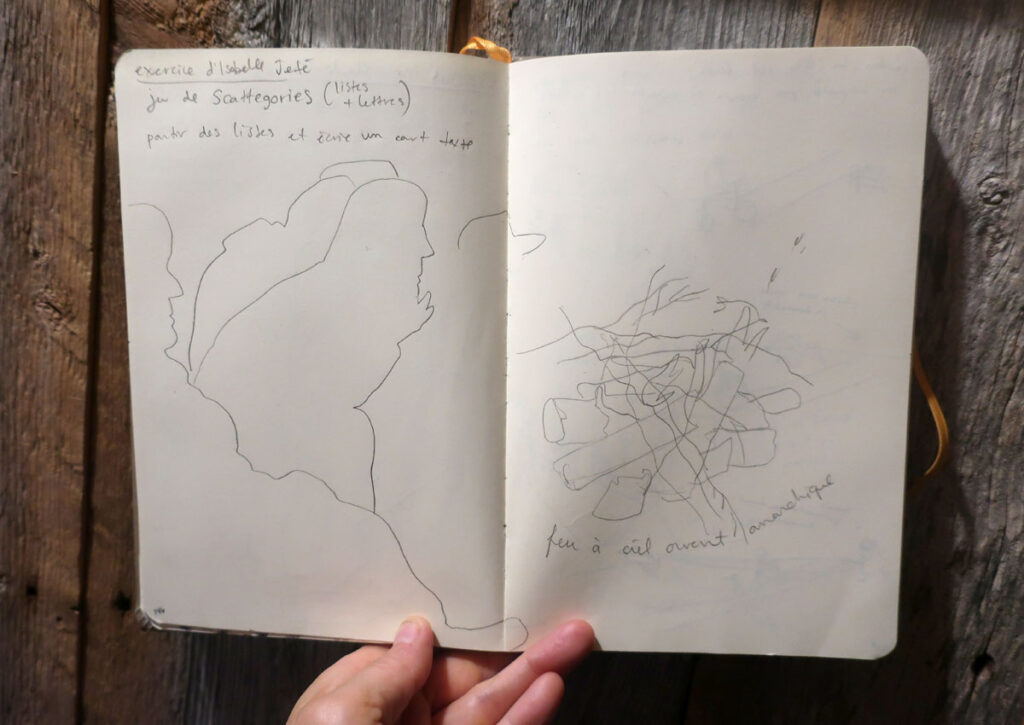 exercice d'Isabelle Jetté
jeu de Scattegories (listes + lettres)
partir des listes et écrire un court texte
feu à ciel ouvert / anarchique